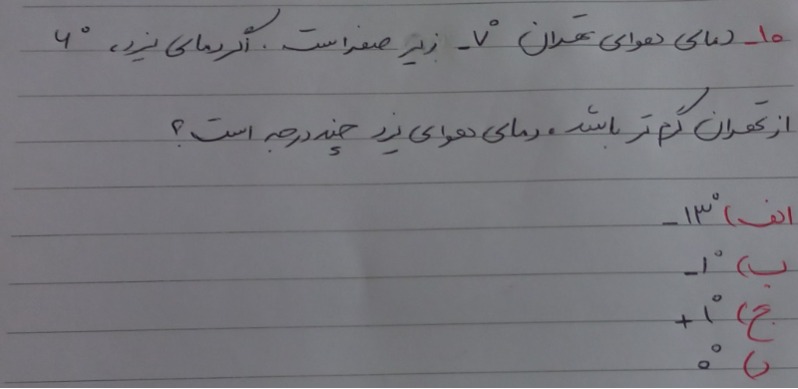 ۱۰_ دمای هوای تهران ۷°_ زیر صفر است. اگر دمای یزد، ۶°
از تهران گرم تر باشد، دمای هوای یزد چند درجه است؟
الف) ۱۳°_
ب) ۱°_
ج) ۱°+
د) ۰°